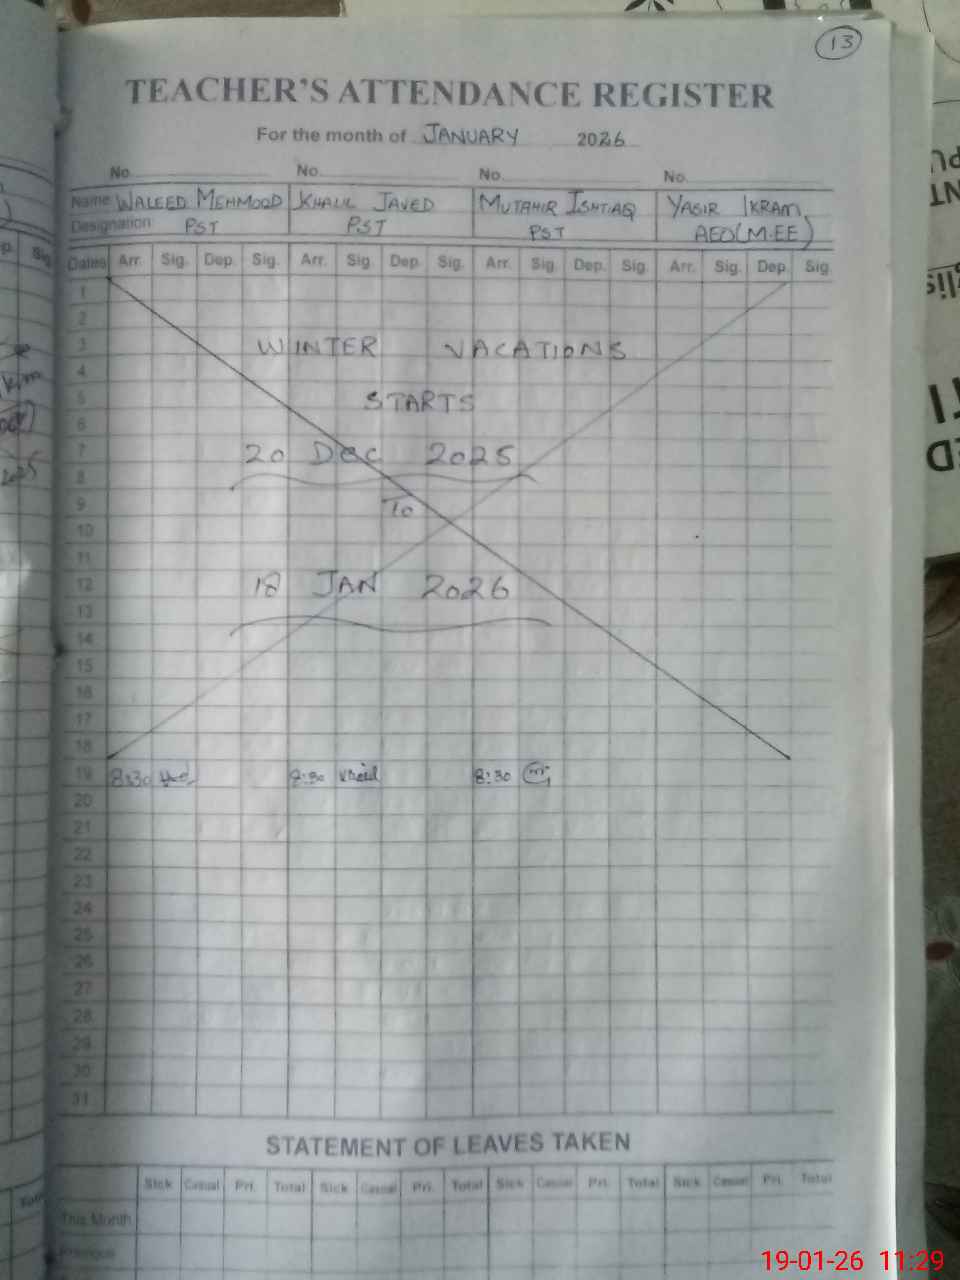 13
TEACHER'S ATTENDANCE REGISTER
For the month of JANUARY 2026
No. No. No. No.
Name WALEED MEHMOOD KHALIL JAVED MUTAHIR ISHTIAQ YASIR IKRAM
Designation PST PST PST AEO(M-EE)
Dates Arr. Sig. Dep. Sig. Arr. Sig. Dep. Sig. Arr. Sig. Dep. Sig. Arr. Sig. Dep. Sig.
1
2
3 WINTER VACATIONS
4
5 STARTS
6
7 20 Dec 2025
8
9 To
10
11
12 18 JAN 2026
13
14
15
16
17
18
19 8:30 8:30 8:30
20
21
22
23
24
25
26
27
28
29
30
31
STATEMENT OF LEAVES TAKEN
Sick Casual Pri. Total Sick Casual Pri. Total Sick Casual Pri. Total Sick Casual Pri. Total
This Month
Previous
19-01-26 11:29